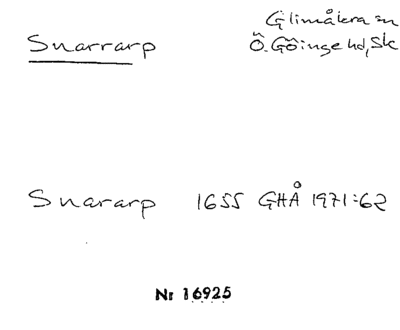 Snarrarp
Glimåkra sn
Ö. Göinge hd, Sk
Snararp 1655 GHÅ 1971:62
Nr 16925